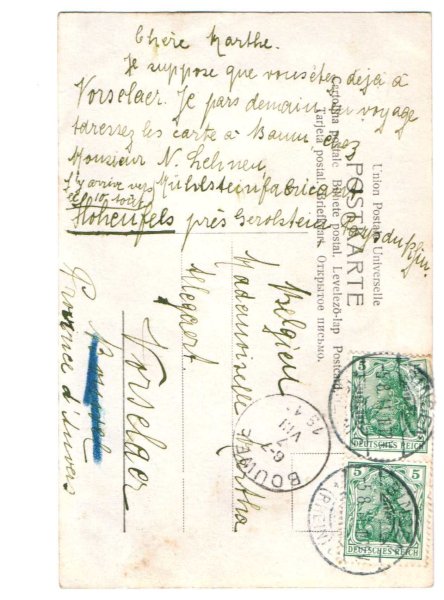 Chère Marthe.
Je suppose que vous êtes déjà à
Vorselaer. Je pars demain en voyage
adressez les carte à
Monsieur N. Lehnen
j'y arrive vers
Mühlsteinfabrica
le 10 août
Hohenfels près Gerolstein
Union Postale Universelle
POSTKARTE
Cartolina postale Bilhete postal. Levelező-lap Postcard
Tarjeta postal. Открытое письмо.
Belgien
Mademoiselle Martha
Allegaert
Vorselaer
Province d'Anvers
BOUWEL
6-7
VIII
191
5
DEUTSCHES REICH
5
DEUTSCHES REICH